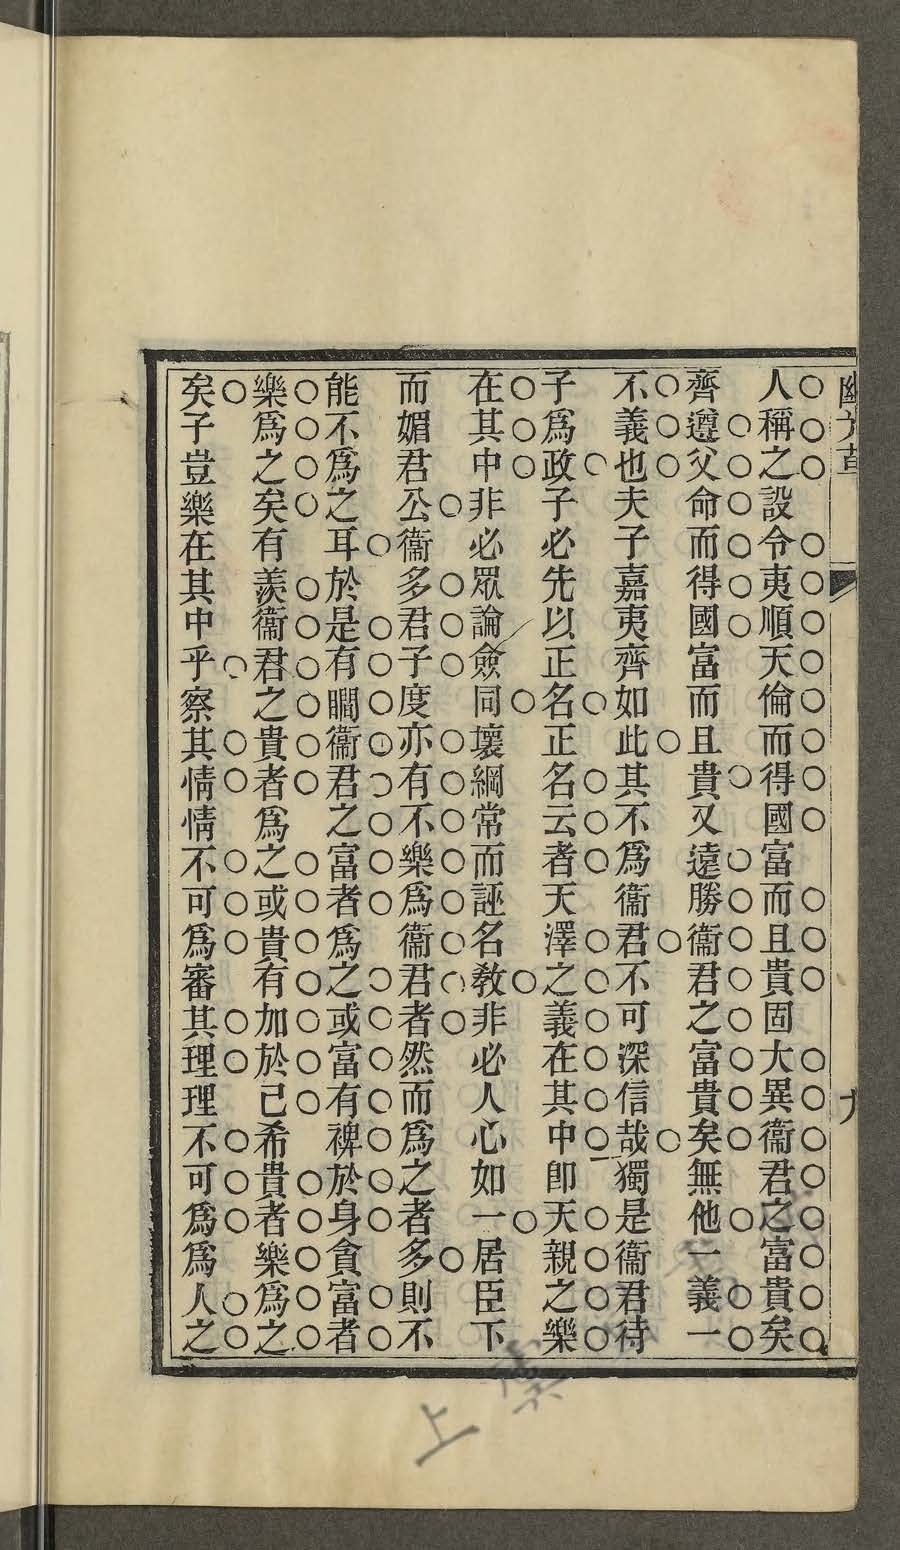 人稱之設令夷順天倫而得國富而且貴固大異衞君之富貴矣
齊遵父命而得國富而且貴又遠勝衞君之富貴矣無他一義一
不義也夫子嘉夷齊如此其不爲衞君不可深信哉獨是衞君待
子爲政子必先以正名正名云者天澤之義在其中卽天親之樂
在其中非必眾論僉同壞綱常而誣名教非必人心如一居臣下
而媚君公衞多君子度亦有不樂爲衞君者然而爲之者多則不
能不爲之耳於是有瞷衞君之富者爲之或富有裨於身貪富者
樂爲之矣有羨衞君之貴者爲之或貴有加於己希貴者樂爲之
矣子豈樂在其中乎察其情情不可爲審其理理不可爲爲人之
上虞